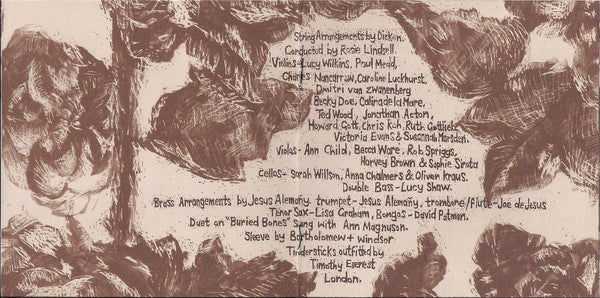 String Arrangements by Dickon.
Conducted by Rosie Lindsell.
Violins-Lucy Wilkins, Paul Medd,
Charles Nancarraw, Caroline Luckhurst,
Dmitri van Zwanenberg
Becky Doe, Calina de la Mare,
Ted Wood, Jonathan Acton,
Howard Gott, Chris Koh, Ruth Gottlieb,
Victoria Evans & Susannah Marsden.
Violas-Ann Child, Becca Ware, Rob Spriggs,
Harvey Brown & Sophie Sirota
Cellos-Sarah Willson, Anna Chalmers & Oliver Kraus.
Double Bass-Lucy Shaw.
Brass Arrangements by Jesus Alemañy. trumpet-Jesus Alemañy, trombone/flute-Joe de Jesus
Tenor Sax-Lisa Graham, Bongos-David Patman.
Duet on "Buried Bones" Sung with Ann Magnuson.
Sleeve by Bartholomew + Windsor
Tindersticks outfitted by
Timothy Everest
London.